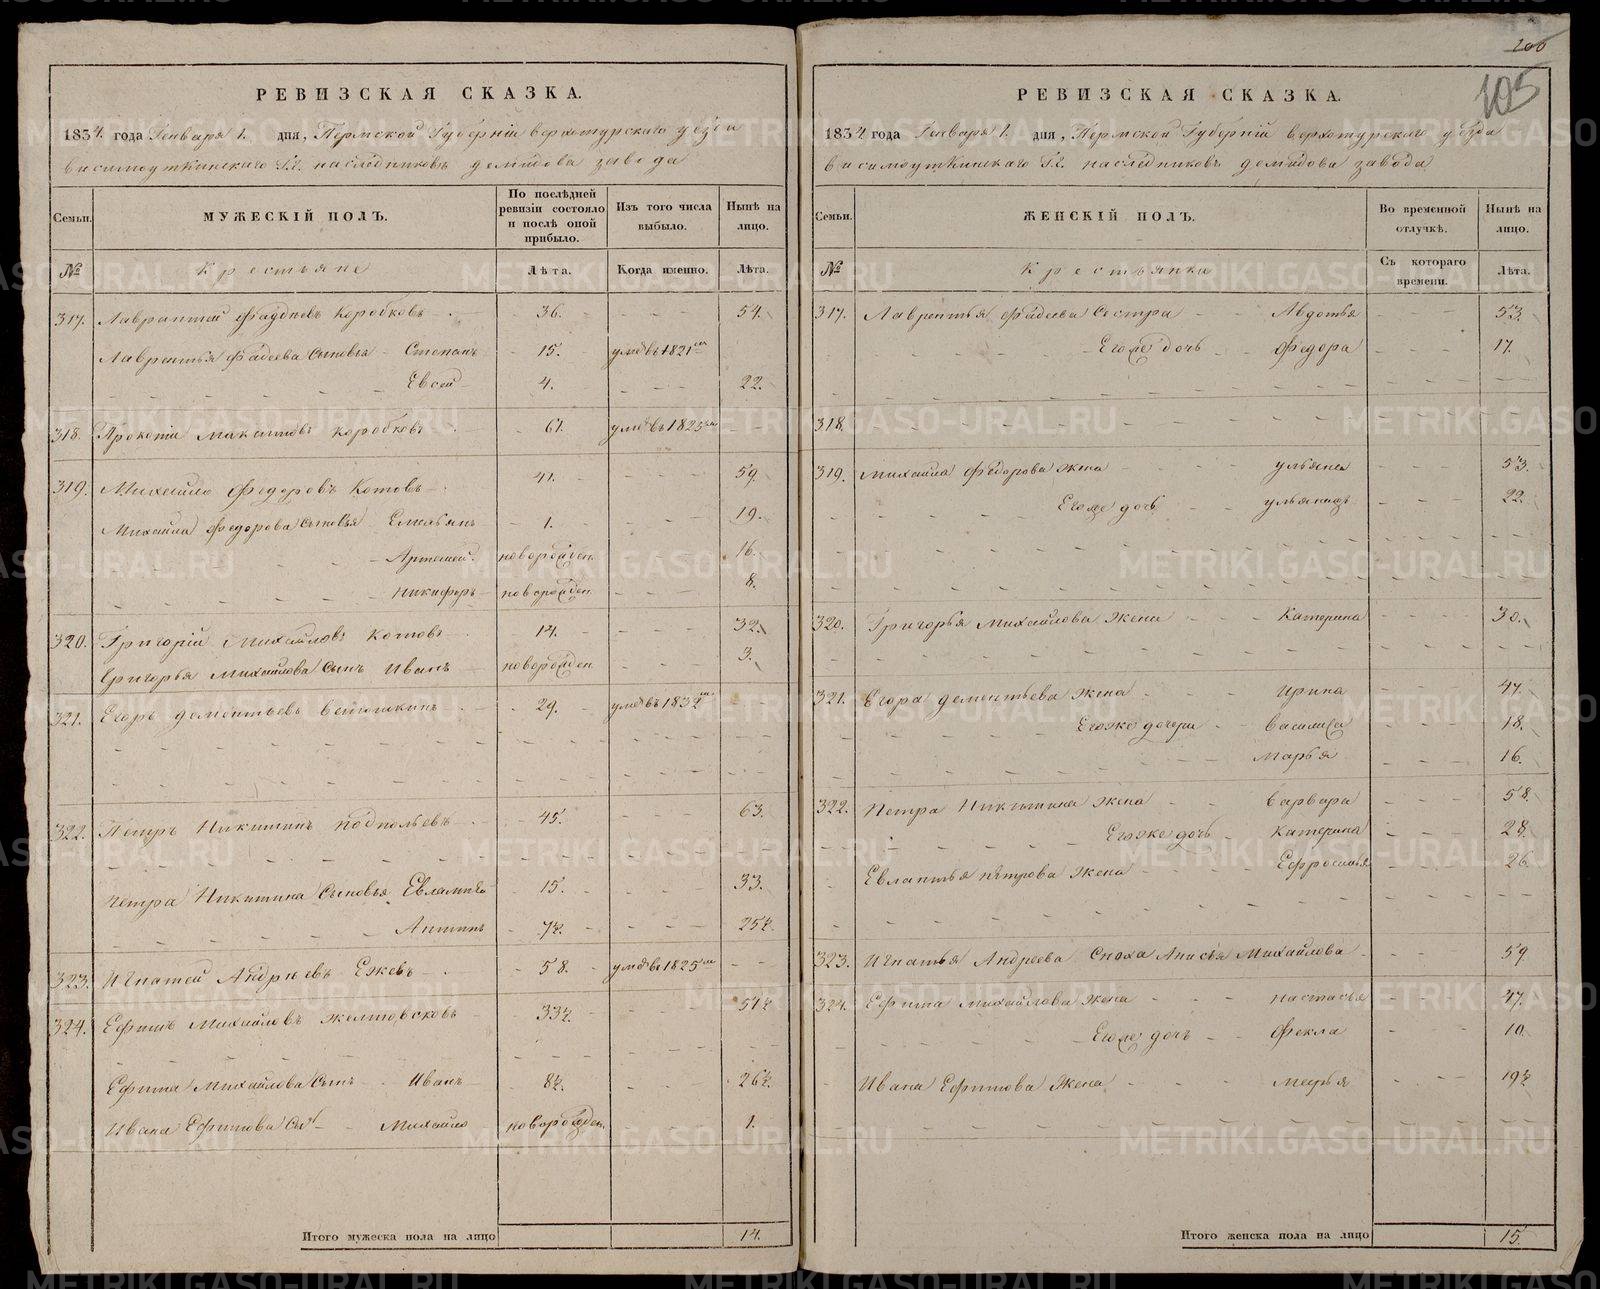 200
105
РЕВИЗСКАЯ СКАЗКА.
1834. года Генваря 1. дня, Пермской Губернiи верхотурскаго уезда
висимоуткинскаго Г.Г. наследниковъ демидова завода
Семьи. МУЖЕСКIЙ ПОЛЪ. По послѣдней ревизiи состояло и послѣ оной прибыло. Изъ того числа выбыло. Нынѣ на лицо.
№ Крестьяне Лѣта. Когда именно. Лѣта.
317. Лаврентей Фадѣевъ Коробковъ 36. 54.
Лаврентья Фадеева сыновья Степанъ 15. умре въ 1821 м
Евсей 4. 22.
318. Прокопiй Максимовъ Коробковъ 61. умре въ 1825 м
319. Михайло Федоровъ Котовъ 41. 59.
Михайла Федорова сыновья Емельянъ 1. 19.
Артемей новорожден. 16.
Никифоръ новорожден 8.
320. Григорiй Михайловъ Котовъ 14. 32.
Григорья Михайлова сынъ Иванъ новорожден 3.
321. Егоръ дементьевъ ветошкинъ 29. умре въ 1832 м
322. Петръ Никитинъ Подпольевъ 45. 63.
Петра Никитина сыновья Евлампей 15. 33.
Антипъ 7½. 25½.
323. Игнатей Андреевъ Ежевъ 58. умре въ 1825 м
324. Ефимъ Михайловъ Желтовсковъ 33½. 51½
Ефима Михайлова сынъ Иванъ 8½. 26½.
Ивана Ефимова сынъ Михайло новорожден. 1.
Итого мужеска пола на лицо 14.
РЕВИЗСКАЯ СКАЗКА.
1834 года Генваря 1. дня, Пермской Губернiй верхотурскаго уезда
висимоуткинскаго Г.Г. наследниковъ демидова завода
Семьи. ЖЕНСКIЙ ПОЛЪ. Во временной отлучкѣ. Нынѣ на лицо.
№ Крестьянки Съ котораго времени. Лѣта.
317. Лаврентья Фадеева сестра Авдотья 53.
Егоже дочь Федора 17.
318.
319. Михайла Федорова жена ульяна 53.
Егоже дочь 22.
320. Григорья Михайлова жена Катерина 30.
321. Егора дементьева жена Ирина 47.
Егоже дочери василиса 18.
марья 16.
322. Петра Никитина жена варвара 58.
Егоже дочь Катерина 28.
Евлампья петрова жена Ефросинья 26.
323. Игнатья Андреева сноха Анисья Михайлова 59
324. Ефима Михайлова жена настасья 47.
Егоже дочь Фекла 10.
Ивана Ефимова жена марья 19½
Итого женска пола на лицо 15.
METRIKI.GASO-URAL.RU